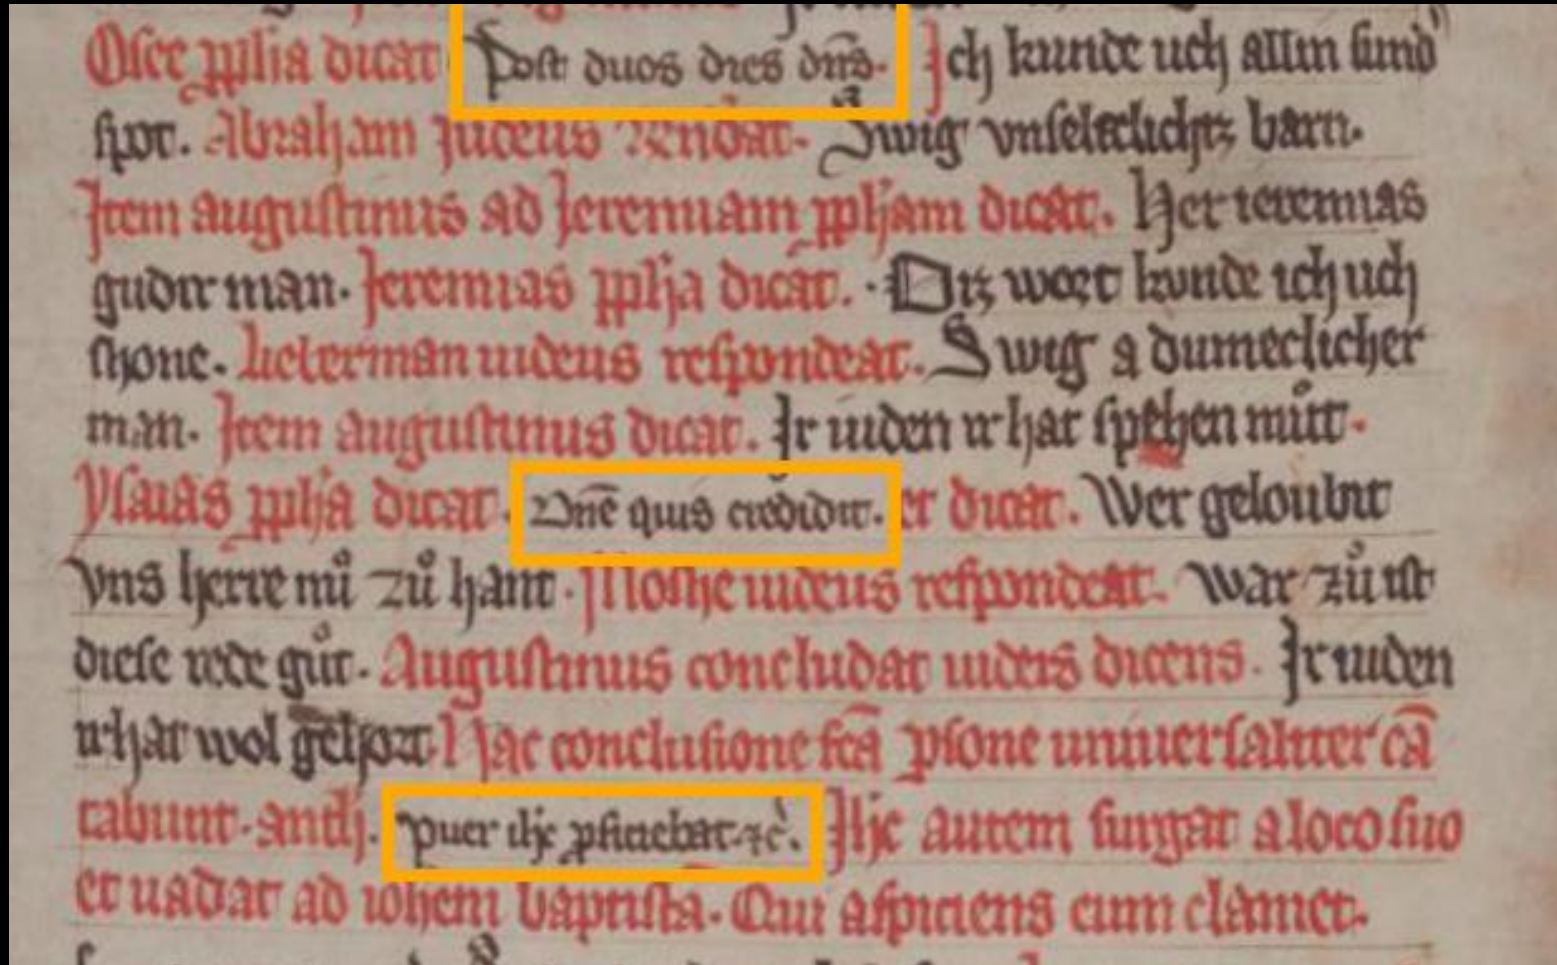 Osee ꝓph̄a dicat Post duos dies dn̄s. Ich kunde uch allin sund'
spot. Abraham Judeus Rn̄deat. Swig vnseleclichꝫ barn.
Item augustinus ad Jeremiam ꝓphām dicat. Her ieremias
gudir man. Jeremias ꝓph̄a dicat. Diꝫ wort kunde ich uch
schone. Lieberman iudeus respondeat. Swig a dumeclicher
man. Item augustinus dicat. Ir iuden ir hat spehen můt.
Ysaias ꝓph̄a dicat. Dn̄e quis credidit. et dicat. Wer geloubit
vns herre nů zů hant. Moshe iudeus respondeat. War zů ist
diese rede gůt. Augustinus concludat iudeis dicens. Ir iuden
ir hat wol gehort. Hac conclusione fcā ꝑsone uniuersaliter cā
tabunt. Puer ih̄c ꝓficiebat ⁊c̄. Ih̄c autem surgat a loco suo
et uadat ad ioh̄em baptista. Qui aspiciens eum clamet.